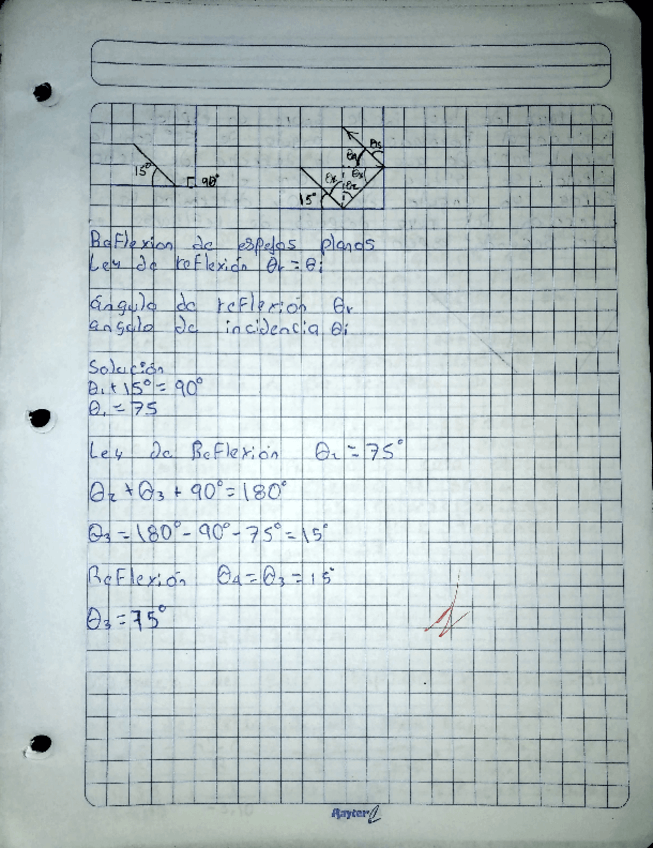 15° 90°
θ5
θ4
θ1 θ3
15° θ2
Reflexion de espejos planos
Ley de reflexión θr = θi
ángulo de reflexión θr
angulo de incidencia θi
Solución
θ1 + 15° = 90°
θ1 = 75
Ley de Reflexión θ2 = 75°
θ2 + θ3 + 90° = 180°
θ3 = 180° - 90° - 75° = 15°
Reflexión θ4 = θ3 = 15°
θ3 = 75°
Rayter